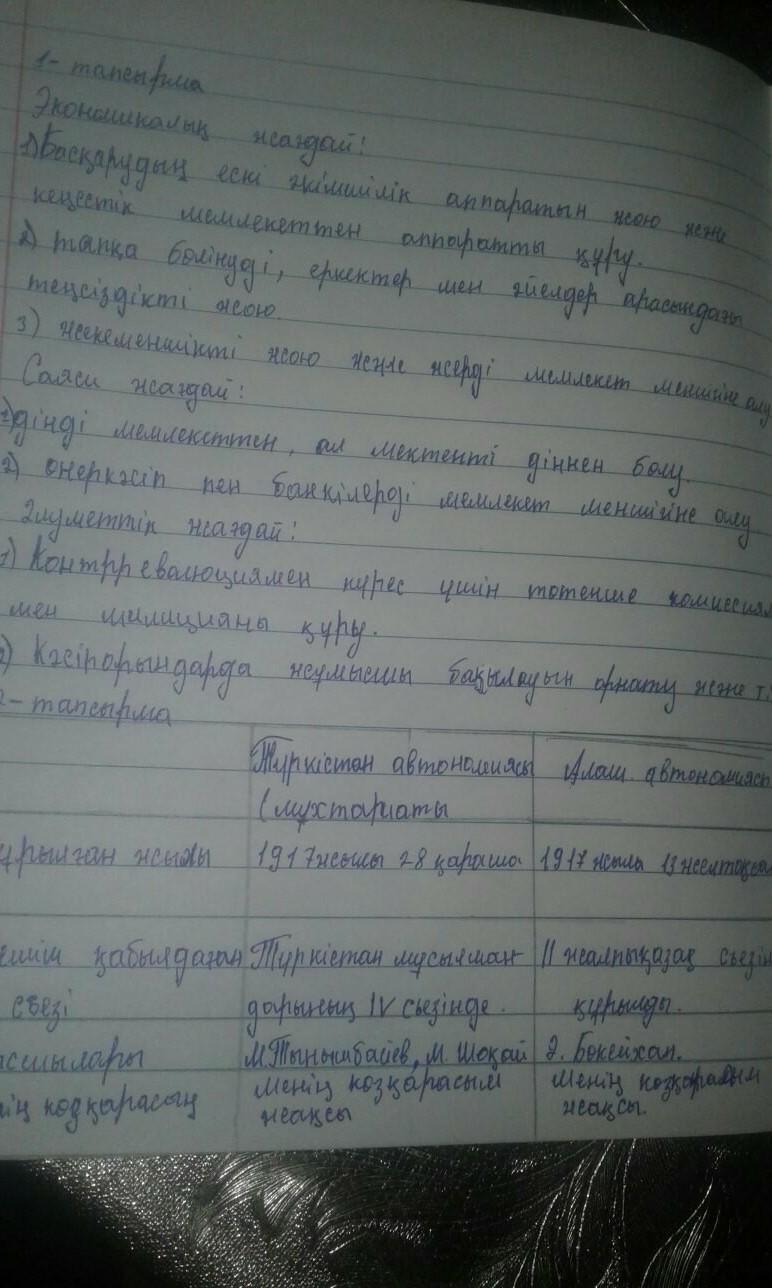 1- тапсырма
Экономикалық жағдай!
1) Басқарудың ескі әкімшілік аппаратын жою және
кеңестік мемлекеттен аппаратты құру.
2) тапқа бөлінуді, еркектер мен әйелдер арасындағы
теңсіздікті жою.
3) жекеменшікті жою және жерді мемлекет меншігіне алу
Саяси жағдай:
1) дінді мемлекеттен, ал мектепті діннен бөлу.
2) өнеркәсіп пен банкілерді мемлекет меншігіне алу
Әлуметтік жағдай!
1) Контрреволюциямен күрес үшін төтенше комиссия
мен милицияны құру.
2) Кәсіпорындарда жұмысшы бақылауын орнату және т.
2- тапсырма
Түркістан автономиясы Алаш автономиясы
(мұхтариаты
ұрылған жылы 1917 жылы 28 қараша 1917 жылы 13 желтоқсан
ешім қабылдаған Түркістан мұсылман- II жалпықазақ сьезін
сьезі дарының IV сьезінде. құрылды.
асшылары М.Тынышбайев, М. Шоқай Ә. Бөкейхан.
ің көзқарасың Менің көзқарасым Менің көзқарасым
жақсы жақсы.